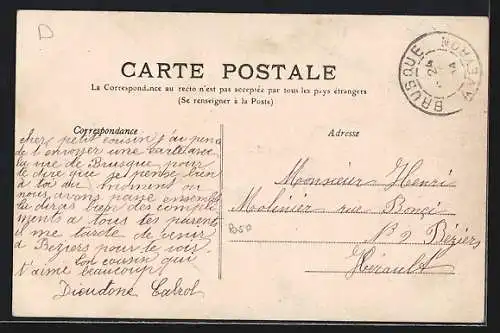 D
CARTE POSTALE
La Correspondance au recto n'est pas acceptée par tous les pays étrangers
(Se renseigner à la Poste)
BRUSQUE AVEYRON
24
14
Correspondance
Adresse
cher petit cousin
de t'envoyer une carte avec
la vue de Brusque pour
te dire que je pense bien
à toi du moment ou
nous avons passé ensemble
tu diras bien des compli
ments a tous tes parents
il me tarde de venir
a Beziers pour te voir.
Ton cousin qui
t'aime beaucoup
Dieudone Cabrol
Monsieur Henri
Molinier rue
Béziers
Hérault
B50